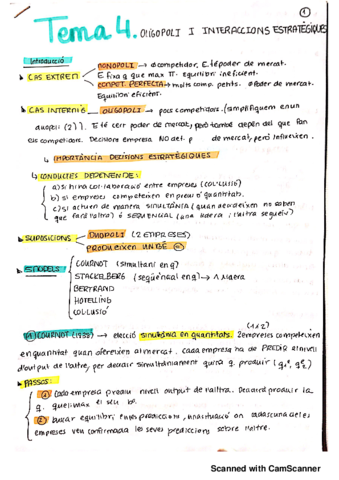 1
Tema 4. OLIGOPOLI I INTERACCIONS ESTRATÈGIQUES
Introducció
CAS EXTREM
MONOPOLI → 0 competidor. E té poder de mercat.
E fixa q que max π. Equilibri ineficient.
COMPET PERFECTA → molts comp. petits. 0 Poder de mercat.
Equilibri eficient.
CAS INTERMIG OLIGOPOLI → pocs competidors. (simplifiquem en un
duopoli (2)). E té cert poder de mercat, però també depèn del que fan
els competidors. Decisions empresa NO det. p de mercat, però influeixen.
↳ IMPORTÀNCIA DECISIONS ESTRATÈGIQUES
↳ CONDUCTES DEPENEN DE:
a) si hi ha col·laboració entre empreses (COL·LUSIÓ)
b) si empreses competeixen en preu o quantitats.
c) si actuen de manera SIMULTÀNIA (quan decideixen no saben
que farà l'altra) o SEQÜENCIAL (una líder i l'altra segueix)
SUPOSICIONS DUOPOLI (2 EMPRESES)
PRODUEIXEN UN BÉ
MODELS
COURNOT (simultani en q)
STACKELBERG (seqüencial en q) → 1 líder
BERTRAND
HOTELLING
COL·LUSIÓ
COURNOT (1838) → elecció simultània en quantitats. 2 empreses competeixen
(1 i 2)
en quantitat quan ofereixen al mercat. Cada empresa ha de PREDIR el nivell
d'output de l'altre, per decidir simultàniament quina q produir
PASSOS:
1 Cada empresa prediu nivell output de l'altra. Decidirà produir la
q. que li max el seu bº.
2 buscar equilibri en les prediccions, una situació on cadascuna de les
empreses veu confirmada les seves prediccions sobre l'altre.
Scanned with CamScanner